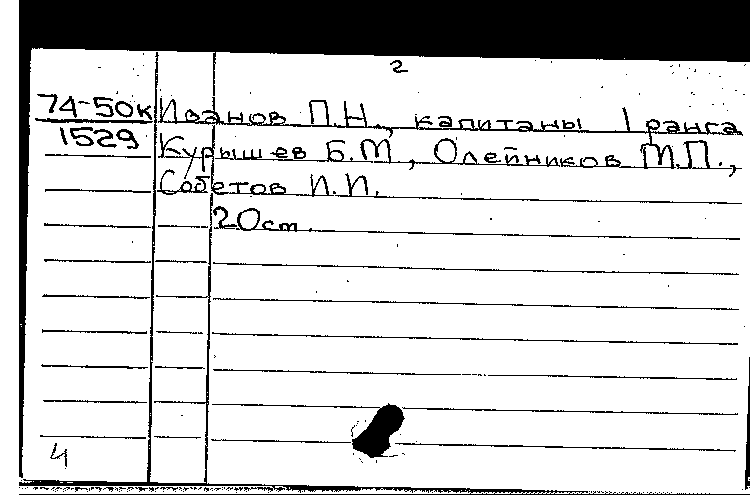 2
74-50к Иванов П.Н., капитаны 1 ранга
1529 Курышев Б.М., Олейников М.П.,
Советов И.И.
20см.
4